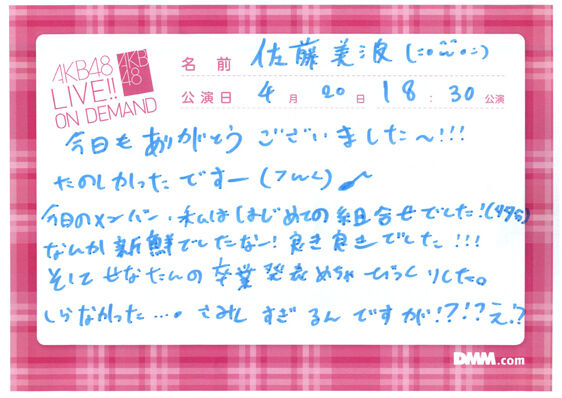 AKB48
LIVE!!
ON DEMAND
AKB
48
名前 佐藤美波
公演日 4月20日 18:30公演
今日もありがとうございました〜!!!
たのしかったですー
今日のメンバー、私ははじめての組合せでした!
なんか新鮮でしたなー!良き良きでした!!!
そしてせなたんの卒業発表めちゃびっくりした。
しらなかった…。さみしすぎるんですが!?!?え!?
DMM.com